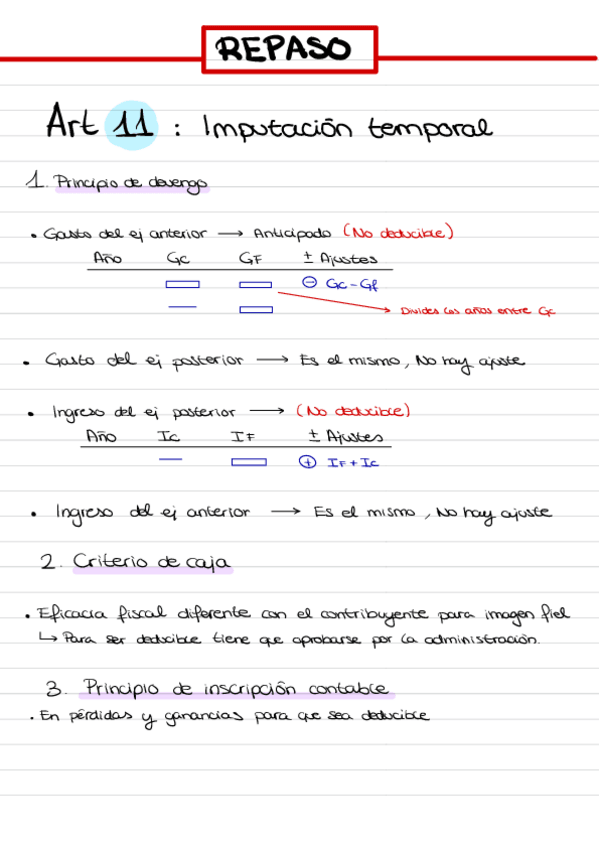 REPASO
Art 11 : Imputación temporal
1. Principio de devengo
• Gasto del ej anterior → Anticipado (No deducible)
Año Gc GF ± Ajustes
⊖ Gc - Gf
Divides los años entre Gc
• Gasto del ej posterior → Es el mismo, No hay ajuste
• Ingreso del ej posterior → (No deducible)
Año Ic IF ± Ajustes
⊕ IF + Ic
• Ingreso del ej anterior → Es el mismo, No hay ajuste
2. Criterio de caja
• Eficacia fiscal diferente con el contribuyente para imagen fiel
↳ Para ser deducible tiene que aprobarse por la administración.
3. Principio de inscripción contable
• En pérdidas y ganancias para que sea deducible